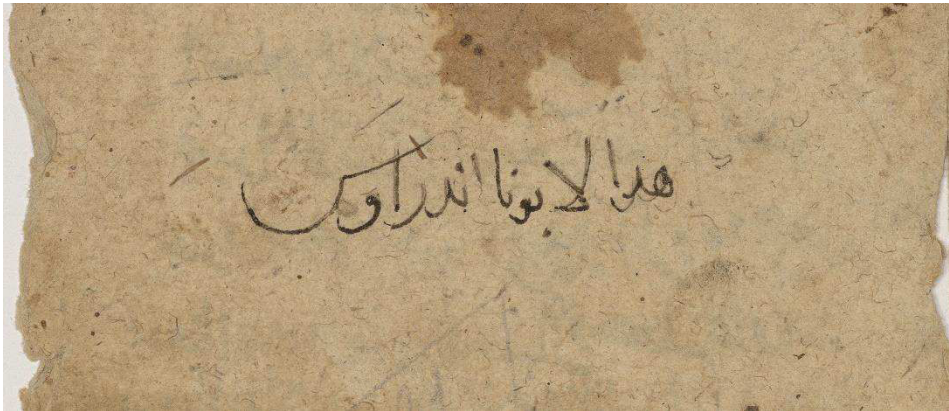 هدا لابونا اندراوس